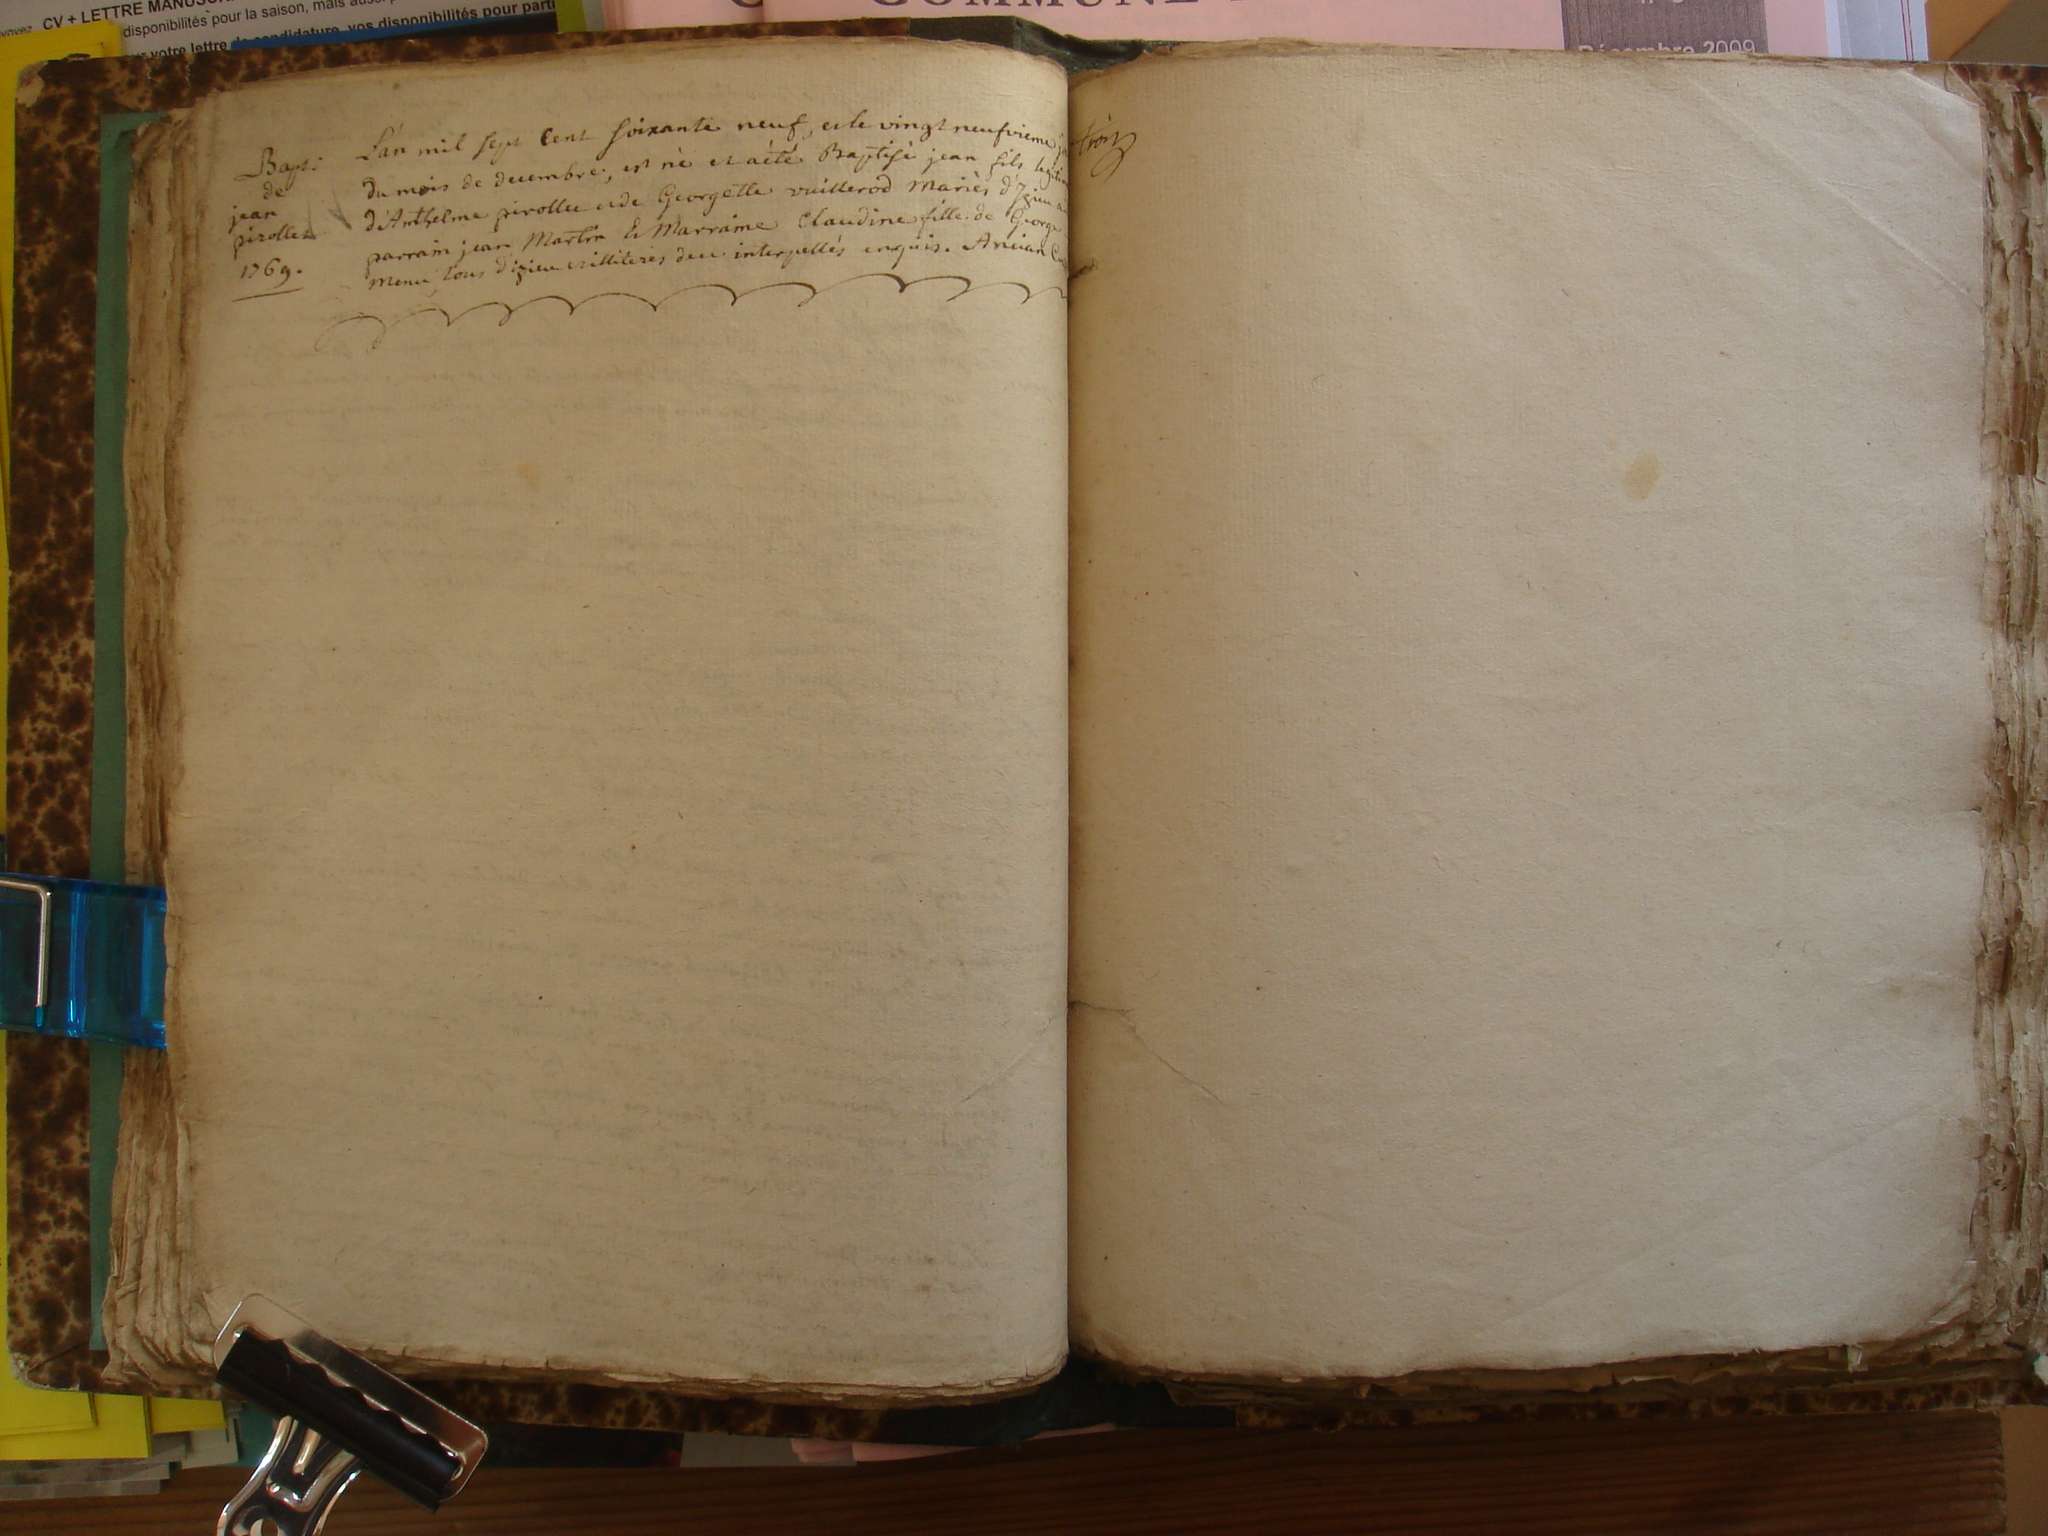 CV + LETTRE MANUSCR
disponibilités pour la saison, mais aussi
votre lettre de candidature, vos disponibilités pour parti
COMMUNE
Décembre 2009
Bapt:
de
jean
pirollet
1769.
L'an mil sept Cent soixante neuf, et le vingt neufvieme
du mois de decembre, est né et a été Baptisé jean fils legitim
d'Anthelme pirollet et de Georgette vuillerod mariés d'Izieu
parrain jean Martin & Marraine Claudine fille de George
menu, tous d'izieu et illiterés de ce interpellés enquis. Ancian C